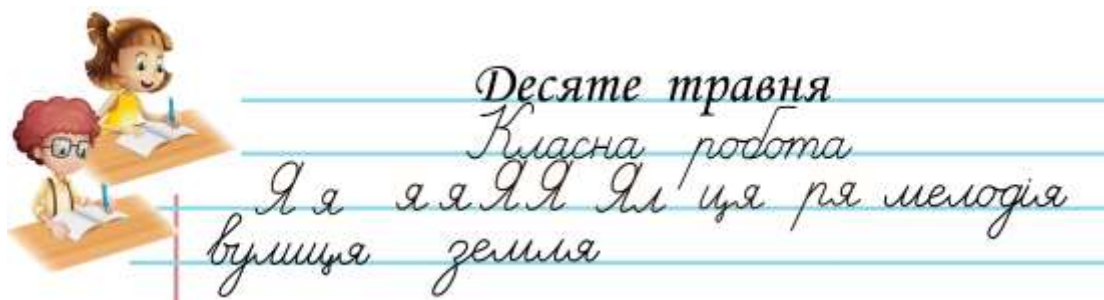 Десяте травня
Класна робота
Я я я я Я Я Ял ця ря мелодія
вулиця земля